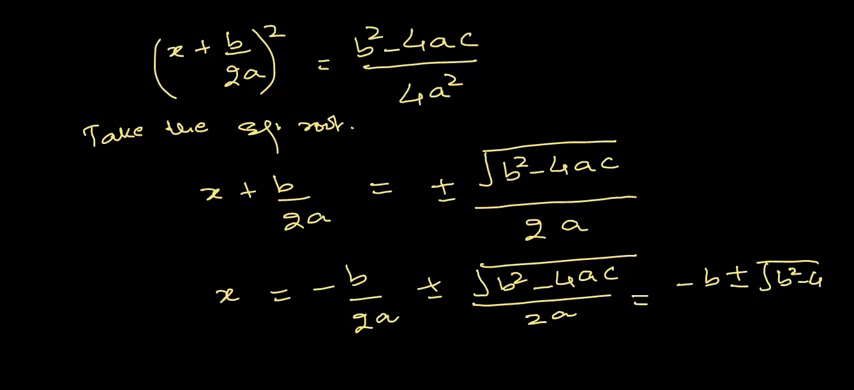 (x + b/2a)² = (b² - 4ac)/4a²
Take the sq. root.
x + b/2a = ± √(b² - 4ac)/2a
x = - b/2a ± √(b² - 4ac)/2a = - b ± √b² - 4